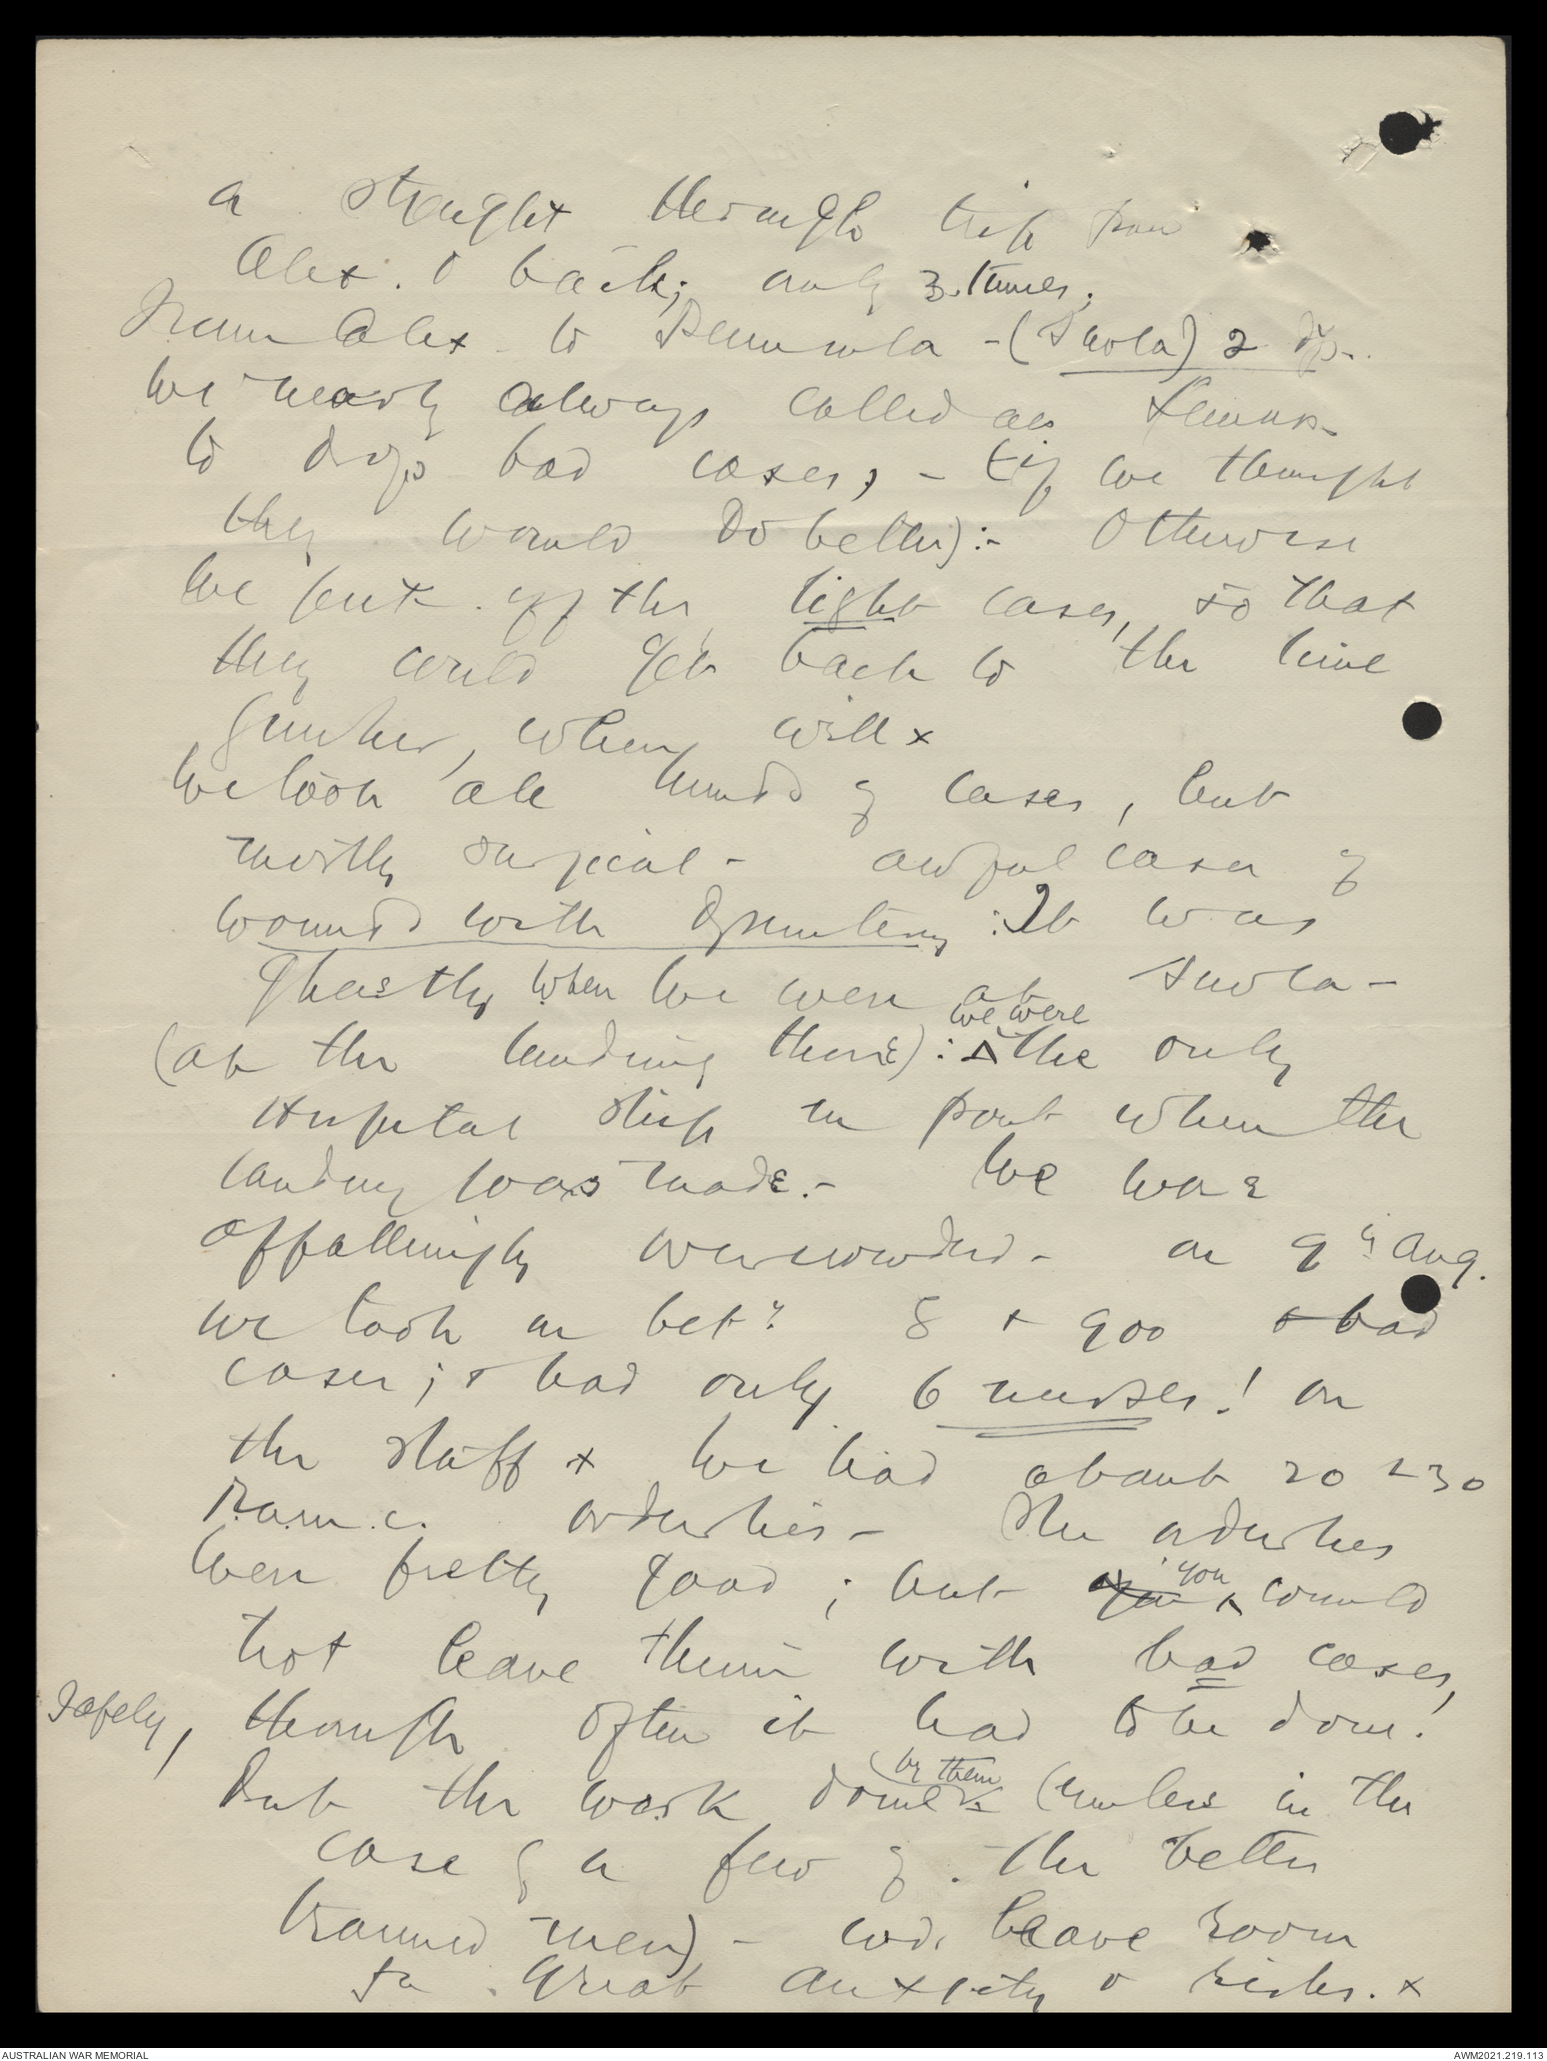 a straight through trip from
Alex. & back; only 3. times.
From Alex to Peninsula - (Suvla) 2 dys.
We nearly always called at Lemnos
to drop bad cases, - (if we thought
they would do better):- Otherwise
we put off the light cases, so that
they could get back to the line
quicker, when well x
We took all kinds of cases, but
mostly surgical - awful cases of
wounds with dysentery: It was
ghastly when we were at Suvla -
(at the landing there): we were the only
Hospital ship in port when the
landing was made.- We were
appallingly overcrowded - on 9th Aug.
we took on betn 8 & 900 bad
cases; & had only 6 nurses! on
the staff x We had about 20 - 30
R.a.m.c. orderlies - The orderlies
were pretty good; but you could
not leave them with bad cases,
safely, though often it had to be done!
But the work done by them (unless in the
case of a few of the better
trained men) - wd. leave room
for great anxiety & risks. x
AUSTRALIAN WAR MEMORIAL
AWM2021.219.113